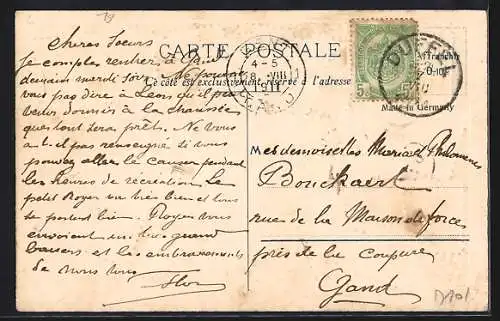 Chères Soeurs
CARTE POSTALE
Je compte rentrer à Gand
demain mardi soir. Ne pourriez
vous pas dire à Léon qu'il
Ce côté est exclusivement réservé à l'adresse
venir à la chaussée
4-5
VIII
1911
GAND
5
DUFFEL
Made in Germany
prêts. Ne vous
a-t-il pas renseigné si vous
pouvez aller le causer pendant
les heures de récréation. Le
petit Roger va très bien et tous
se portent bien. Roger vous
envoient un bien grand
baiser et les embrassements
de nous tous
Flor
Mesdemoiselles Maria & Philomène
Bouckaert
rue de la Maison de force
près de la Coupure
Gand